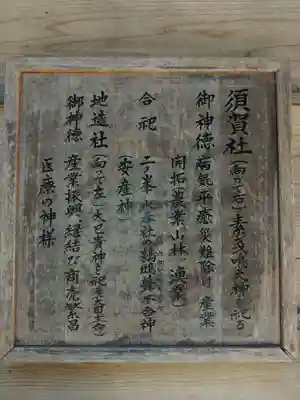 須賀社(向って右)素戔嗚大神を祀る
御神徳 病気平癒災難除け 産業
開拓(農業山林漁業)
合祀 二ノ峯火本社の鵜鶿草不合神
(安産神)
地造社(向って左)大己貴神を祀る(大国主命)
御神徳 産業振興縁結び商売繁昌
医療の神様